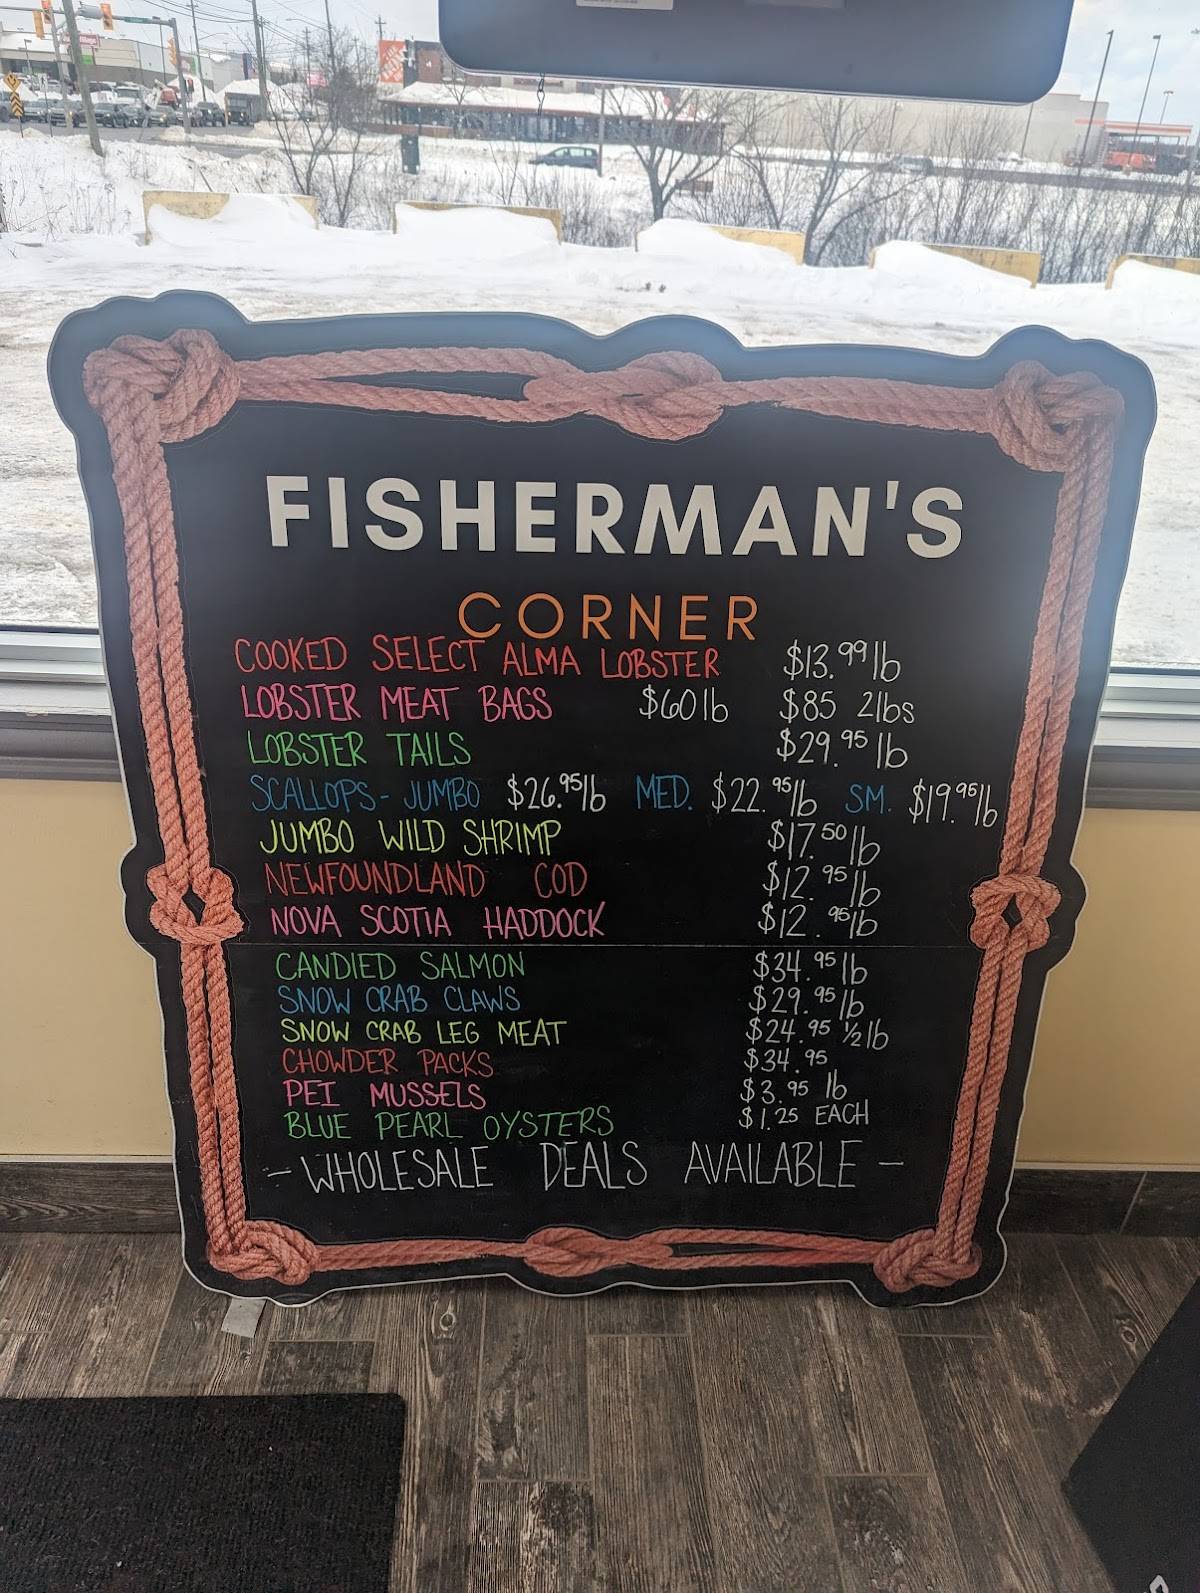 THE HOME DEPOT
FISHERMAN'S
CORNER
COOKED SELECT ALMA LOBSTER $13.99 lb
LOBSTER MEAT BAGS $60 lb $85 2lbs
LOBSTER TAILS $29.95 lb
SCALLOPS - JUMBO $26.95 lb MED. $22.95 lb SM. $19.95 lb
JUMBO WILD SHRIMP $17.50 lb
NEWFOUNDLAND COD $12.95 lb
NOVA SCOTIA HADDOCK $12.95 lb
CANDIED SALMON $34.95 lb
SNOW CRAB CLAWS $29.95 lb
SNOW CRAB LEG MEAT $24.95 ½ lb
CHOWDER PACKS $34.95
PEI MUSSELS $3.95 lb
BLUE PEARL OYSTERS $1.25 EACH
- WHOLESALE DEALS AVAILABLE -